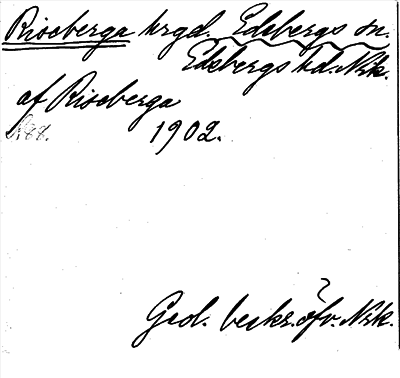 Riseberga krgd. Edsbergs sn.
Edsbergs hd. Nrk.
af Riseberga
1902.
Geol. beskr. öfv. Nrk.